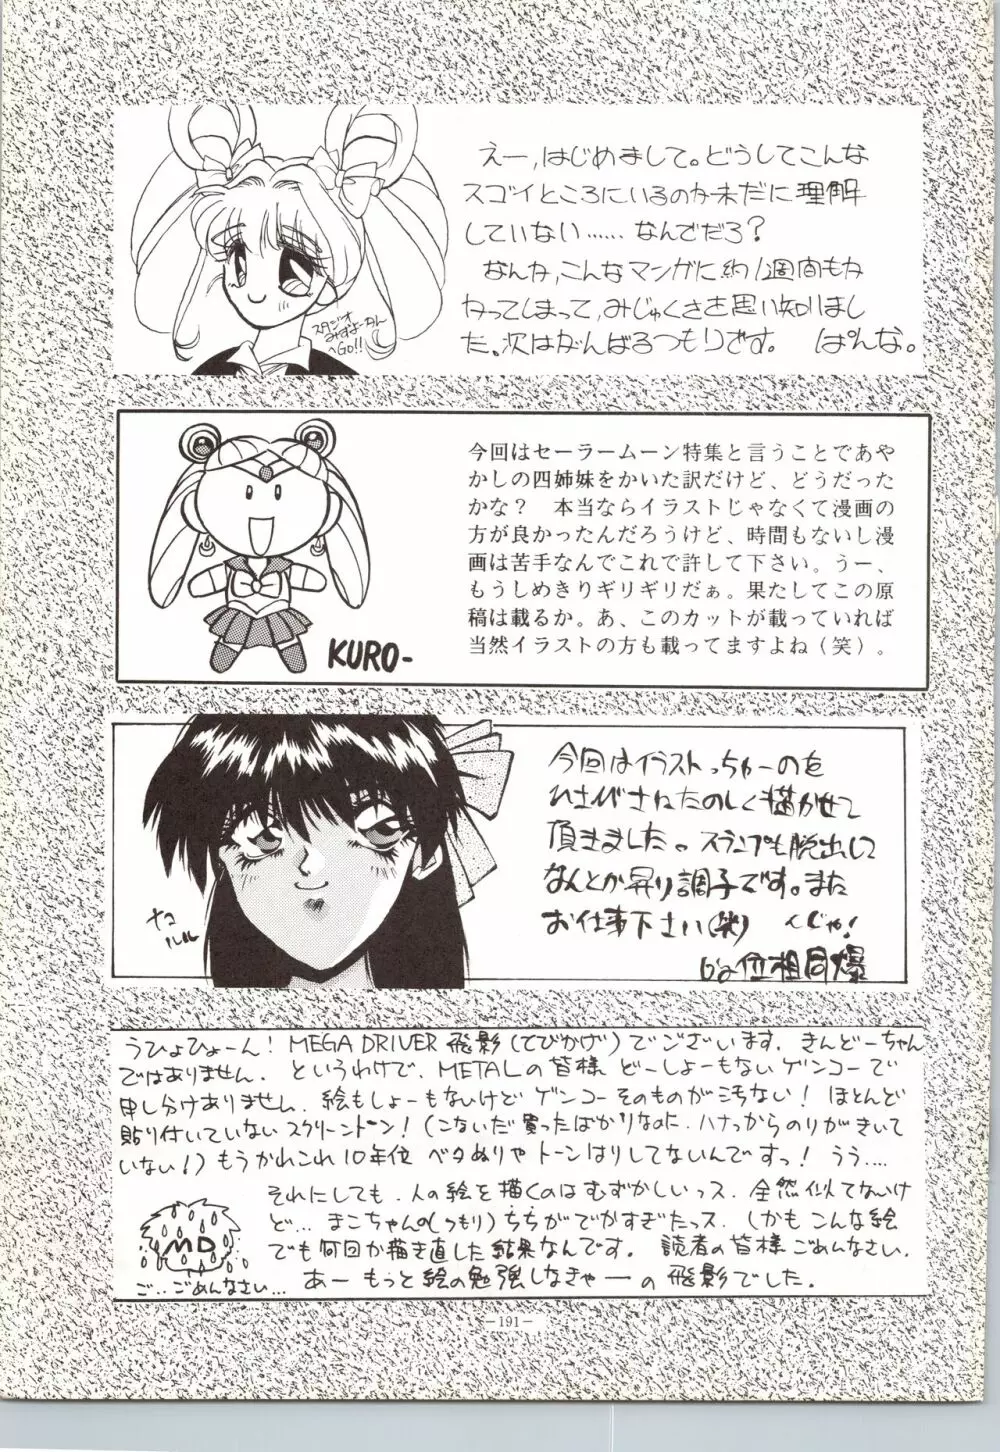 えー,はじめまして。どうしてこんな
スゴイところにいるのか未だに理解
していない……なんでだろ?
なんか,こんなマンガに約1週間もか
かってしまって,みじゅくさを思い知りまし
た。次はがんばるつもりです。 ぱんな。
スタジオ
みすよーかん
へGO!!
今回はセーラームーン特集と言うことであや
かしの四姉妹をかいた訳だけど、どうだった
かな? 本当ならイラストじゃなくて漫画の
方が良かったんだろうけど、時間もないし漫
画は苦手なんでこれで許して下さい。うー、
もうしめきりギリギリだぁ。果たしてこの原
稿は載るか。あ、このカットが載っていれば
当然イラストの方も載ってますよね(笑)。
KURO-
今回はイラストっちゅーのを
ひさびさねたのしく描かせて
頂きました。スランプも脱出して
なんとか昇り調子です。また
お仕事下さい(笑) んじゃ!
位相同爆
ナコ
ルル
うひょひょーん! MEGA DRIVER 飛影(とびかげ)でございます. きんどーちゃん
ではありません. というわけで, METALの皆様 どーしよーもないゲンコーで
申し分けありません. 絵もしょーもないけど ゲンコーそのものが汚ない! ほとんど
貼り付いていないスクリーントーン! (こないだ買ったばかりなのに. ハナっからのりがきいて
いない!) もうかれこれ10年位 ベタぬりや トーンはりしてないんですっ! うう….
それにしても. 人の絵を描くのはむずかしいっス. 全然似てないけ
ど… まこちゃん(のつもり)ちちがでかすぎたっス. しかもこんな絵
でも何回か描き直した結果なんです. 読者の皆様ごめんなさい.
あー もっと絵の勉強しなきゃーの 飛影でした.
MD
ご..ごめんなさい…
－191－